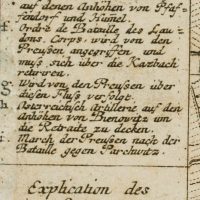 auf denen Anhöhen von Pfaf-
fendorf und Hümel.
f. Ordre de Bataille des Lau-
dons. Corps, wird von den
Preußen angegriffen und
muß sich über die Katzbach
retiriren.
g. Wird von den Preußen über
diesen Fluß verfolgt.
h. Österreichisch artillerie auf den
anhöhen von Bienowitz um
die Retraite zu decken.
i. March der Preußen nach der
Bataille gegen Parchwitz.
Explication des